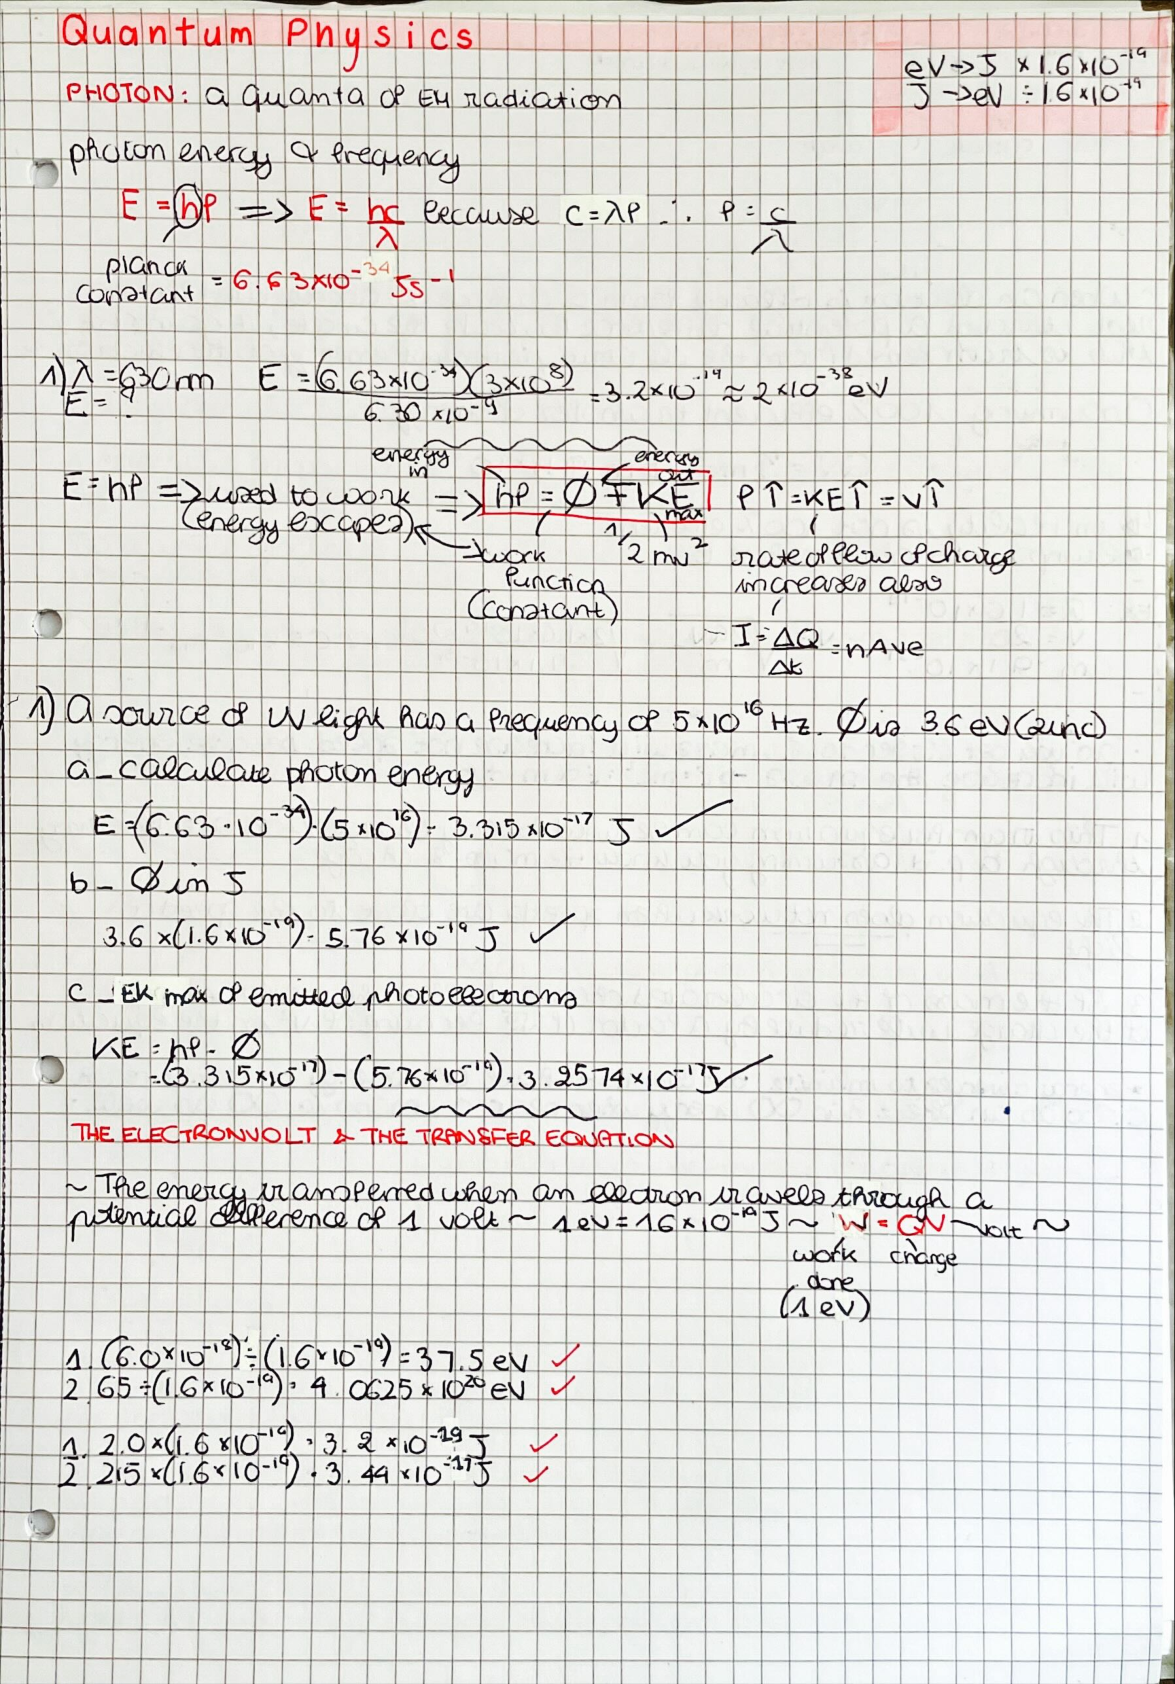 Quantum Physics
eV→J × 1.6×10⁻¹⁹
J→eV ÷ 1.6×10⁻¹⁹
PHOTON: a quanta of EM radiation
photon energy & frequency
E = hf => E = hc/λ because c = λf ∴ f = c/λ
planck constant = 6.63×10⁻³⁴ Js⁻¹
1) λ = 630nm E = (6.63×10⁻³⁴)(3×10⁸)/6.30×10⁻⁹ = 3.2×10⁻¹⁹ ≈ 2×10⁻³⁸ eV
E = ?
energy in energy out
E = hf => used to work => hf = Ø + KE max f↑ = KE↑ = v↑
(energy escapes) 1/2 mv²
→work function (constant)
rate of flow of charge
increases also
I = ΔQ/Δt = nAve
1) a source of UV light has a frequency of 5×10¹⁶ Hz. Ø is 3.6 eV (zinc)
a - calculate photon energy
E = (6.63·10⁻³⁴)·(5×10¹⁶) = 3.315×10⁻¹⁷ J ✓
b - Ø in J
3.6 ×(1.6×10⁻¹⁹) = 5.76×10⁻¹⁹ J ✓
c - EK max of emitted photoelectrons
KE = hf - Ø
= (3.315×10⁻¹⁷) - (5.76×10⁻¹⁹) = 3.2574×10⁻¹⁷ J ✓
THE ELECTRONVOLT & THE TRANSFER EQUATION
~ The energy transferred when an electron travels through a
potential difference of 1 volt ~ 1eV = 1.6×10⁻¹⁹ J ~ W = QV - volt ~
work done (1 eV) charge
1. (6.0×10⁻¹⁸) ÷ (1.6×10⁻¹⁹) = 37.5 eV ✓
2. 65 ÷ (1.6×10⁻¹⁹) = 4.0625×10²⁰ eV ✓
1. 2.0×(1.6×10⁻¹⁹) = 3.2×10⁻¹⁹ J ✓
2. 215×(1.6×10⁻¹⁹) = 3.44×10⁻¹⁷ J ✓